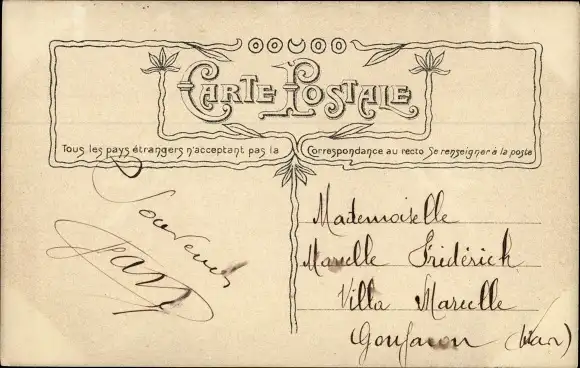 CARTE POSTALE
Tous les pays étrangers n'acceptent pas la Correspondance au recto Se renseigner à la poste
Souvenir
Mademoiselle
Marcelle Fridérich
Villa Marcelle
Gonfaron (Var)